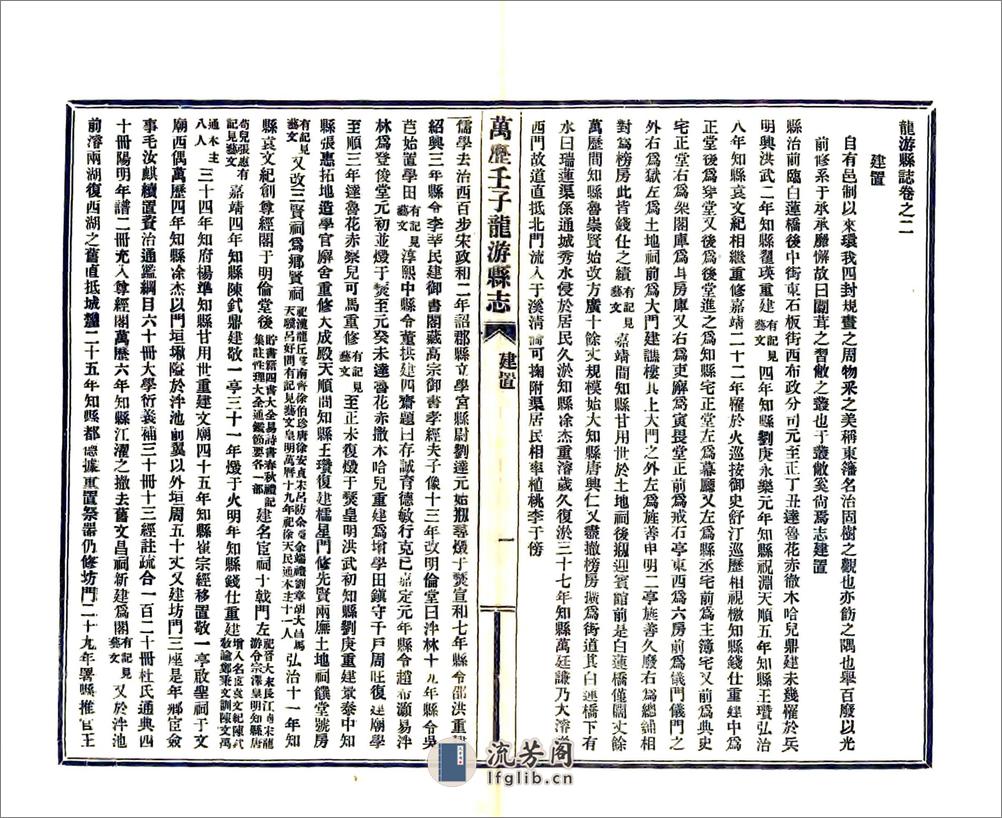 龍游縣誌卷之二
建置
自有邑制以來環我四封規畫之周物釆之美稱東藩名治固樹之觀也亦飭之隅也舉百廢以光
前修系于承承靡懈故曰闒茸之習敝之叢也于叢敝奚尚焉志建置
縣治前臨白蓮橋後中街東石板街西布政分司元至正丁丑達魯花赤徹木哈兒鼎建未幾罹於兵
明興洪武二年知縣瞿瑛重建有記見藝文四年知縣劉庚永樂元年知縣祝淵天順五年知縣王瓚弘治
八年知縣袁文紀相繼重修嘉靖二十二年罹於火巡按御史舒汀巡歷相視檄知縣錢仕重建中爲
正堂後爲穿堂又後爲後堂進之爲知縣宅正堂左爲幕廳又左爲縣丞宅前爲主簿宅又前爲典史
宅正堂右爲架閣庫爲兵房庫又右爲吏廨爲寅畏堂正前爲戒石亭東西爲六房前爲儀門儀門之
外右爲獄左爲土地祠前爲大門建譙樓其上大門之外左爲旌善申明二亭旌善久廢右爲總鋪相
對爲榜房此皆錢仕之績有記見藝文嘉靖間知縣甘用世於土地祠後剏迎賓館前是白蓮橋僅闊丈餘
萬歷間知縣魯崇賢始改方廣十餘丈規模始大知縣唐興仁又盡撤榜房 爲街道其白蓮橋下有
水曰瑞蓮渠係通城秀水侵於居民久淤知縣凃杰重濬歲久復淤三十七年知縣萬廷謙乃大濬
西門故道直抵北門流入于溪淸 可掬附渠居民相率植桃李于傍
萬歷壬子龍游縣志
建置
一
儒學去治西百步宋政和二年詔郡縣立學宮縣尉劉達元始剏尋燬于 宣和七年縣令邵洪重建
紹興三年縣令李莘民建御書閣藏高宗御書孝經夫子像十三年改明倫堂曰泮林十九年縣令吳
芑始置學田有記見藝文淳熙中縣令董拱建四齋題曰存誠育德敏行克己嘉定元年縣令趙布灝易泮
林爲登俊堂元初並燬于 至元癸未達魯花赤撤木哈兒重建爲增學田鎮守千戶周旺復建廟學
至順三年達魯花赤察兒可馬重修有記見藝文至正末復燬于 皇明洪武初知縣劉庚重建景泰中知
縣張惠拓地造學官廨舍重修大成殿天順間知縣王瓚復建櫺星門修先賢兩廡土地祠饌堂號房
有記見藝文又改三賢祠爲鄉賢祠祀漢龍丘萇南齊徐伯珍唐徐安貞宋呂防余 余端禮劉章胡大昌馬天驥呂好問有記見藝文皇明萬曆十九年祀徐天民通本主十一人弘治十一年知
縣袁文紀創尊經閣于明倫堂後貯書籍四書大全易詩書春秋禮記集註性理大全通鑑節要各一部建名宦祠于戟門左祀晉大末長江 宋龍游令宗澤皇明知縣唐
荀兒張惠有記見藝文嘉靖四年知縣陳鉞鼎建敬一亭三十一年燬于火明年知縣錢仕重建增入名宦袁文紀陳鉞敎諭鄭秉文訓陳文禹
通本主八人三十四年府楊準知縣甘用世重建文廟四十五年知縣崔宗經移置敬一亭啟聖祠于文
廟西偶萬歷四年知縣凃杰以門垣 隘於泮池前翼以外垣周五十丈又建坊門三座是年鄉宦僉
事毛汝麒續置資治通鑑綱目六十冊大學衍義補三十冊十三經註疏合一百二十冊杜氏通典四
十冊陽明年譜二冊充入尊經閣萬歷六年知縣江濯之撤去舊文昌祠新建爲閣有記見藝文又於泮池
前濬兩湖復西湖之舊直抵城 二十五年知縣都 據重置祭器仍修坊門二十九年署縣推官王
流芳阁
lfglib.cn